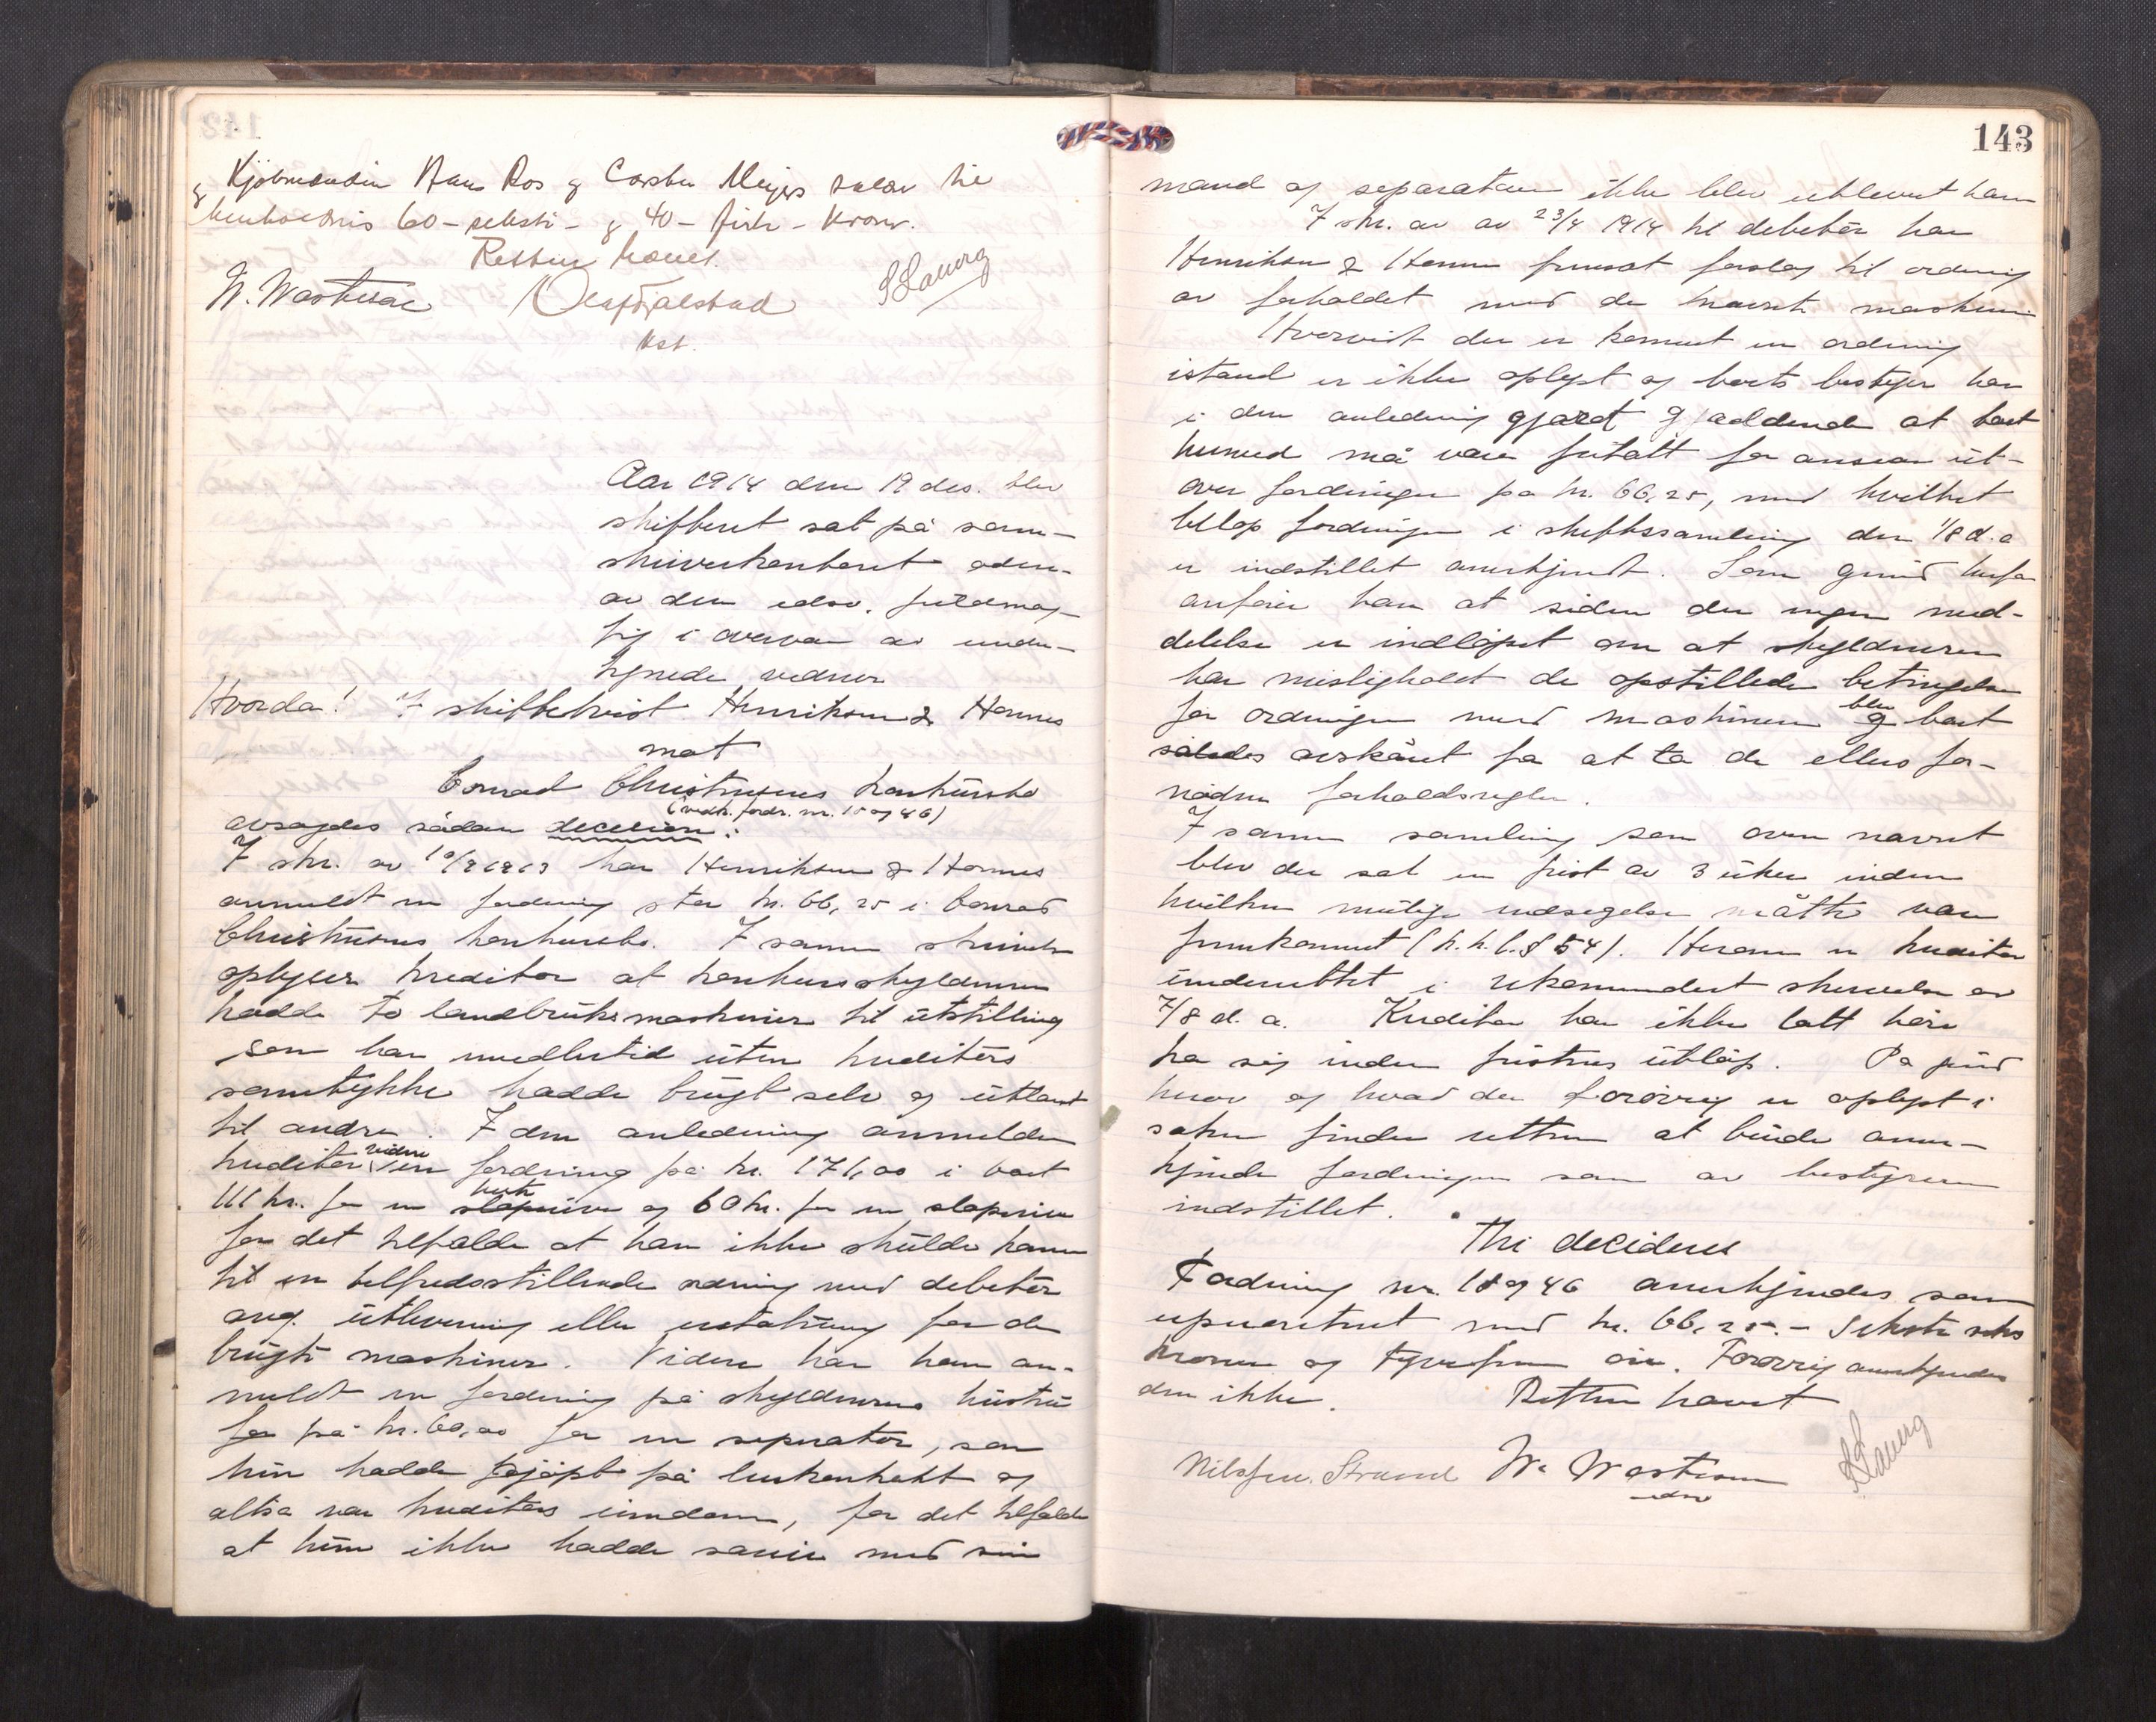 Kjöbmændene Hans Ros og Carsten Meyers salær til
henholdsvis 60 - seksti - og 40 - firti - Kroner.
Retten hævet.
W. Wastesen Olaf Dalstad
kst.
Aar 1914 den 19 des. blev
skifteret sat på soren-
skriverkontoret adm.
av den edsv. fuldmæg-
tig i overvær av under-
tegnede vidner
Hvorda! I skiftetvist Henriksen & Hannes
mot
Conrad Christensens konkursbo
(vedk. fordr. nr. 15 og 46)
avsagdes sådan decision:
I skr. av 10/9 1913 har Henriksen & Hannes
anmeldt en fordring stor kr. 66,25 i Conrad
Christensens konkursbo. I samme skrivelse
oplyser kreditor at konkursskyldneren
hadde to landbruksmaskiner til utstilling
som han imedlertid uten kreditors
samtykke hadde brugt selv og utlånt
til andre. I den anledning anmelder
kreditor videre en fordring på kr. 171,00 i boet
111 kr. for en slåmaskine og 60 kr. for en sloperive
for det tilfælde at han ikke skulde komme
til en tilfredsstillende ordning med debitor
ang. utlevering eller erstatning for de
brugte maskiner. Videre har han an-
meldt en fordring på skyldnerens hustru
for på kr. 60,00 for en separator, som
hun hadde kjøpt på leiekontrakt og
altså var kreditors eiendom, for det tilfælde
at hun ikke hadde særeie med sin
143
mand og separatoren ikke blev utleveret ham
I skr. av av 23/4 1914 til debitor har
Henriksen & Hannes fremsat forslag til ordning
av forholdet med de nævnte maskiner
Hvorvidt der er kommet en ordning
istand er ikke oplyst og boets bestyrer har
i den anledning gjort gjældende at boet
herved må være fritatt for ansvar ut-
over fordringen på kr. 66,25, med hvilket
beløp fordringen i skiftesamling den 1/8 d.a
er indstillet anerkjendt. Som grund herfor
anfører han at siden der ingen med-
delelse er indløpet om at skyldneren
har misligholdt de opstillede betingelser
for ordningen med maskinene blev boet
således avskåret fra at ta de ellers for-
nødne forholdsregler.
I samme samling som oven nævnt
blev der sat en frist av 3 uker inden
hvilken mulige indsigelser måtte være
fremkommet (k.k.l. § 54). Herom er kreditor
underrettet i rekommandert skrivelse av
7/8 d. a. Kreditor har ikke latt høre
fra sig inden fristens utløp. På grund
herav og hvad der forøvrig er oplyst i
saken finder retten at burde aner-
kjende fordringen som av bestyreren
indstillet.
Thi decideres
Fordring nr. 15 og 46 anerkjendes som
uprioritert med kr. 66,25.- Seksti seks
kroner og tyvefem øre. Forøvrig anerkjendes
den ikke. Retten hævet
Strand W. Wastesen
edsv